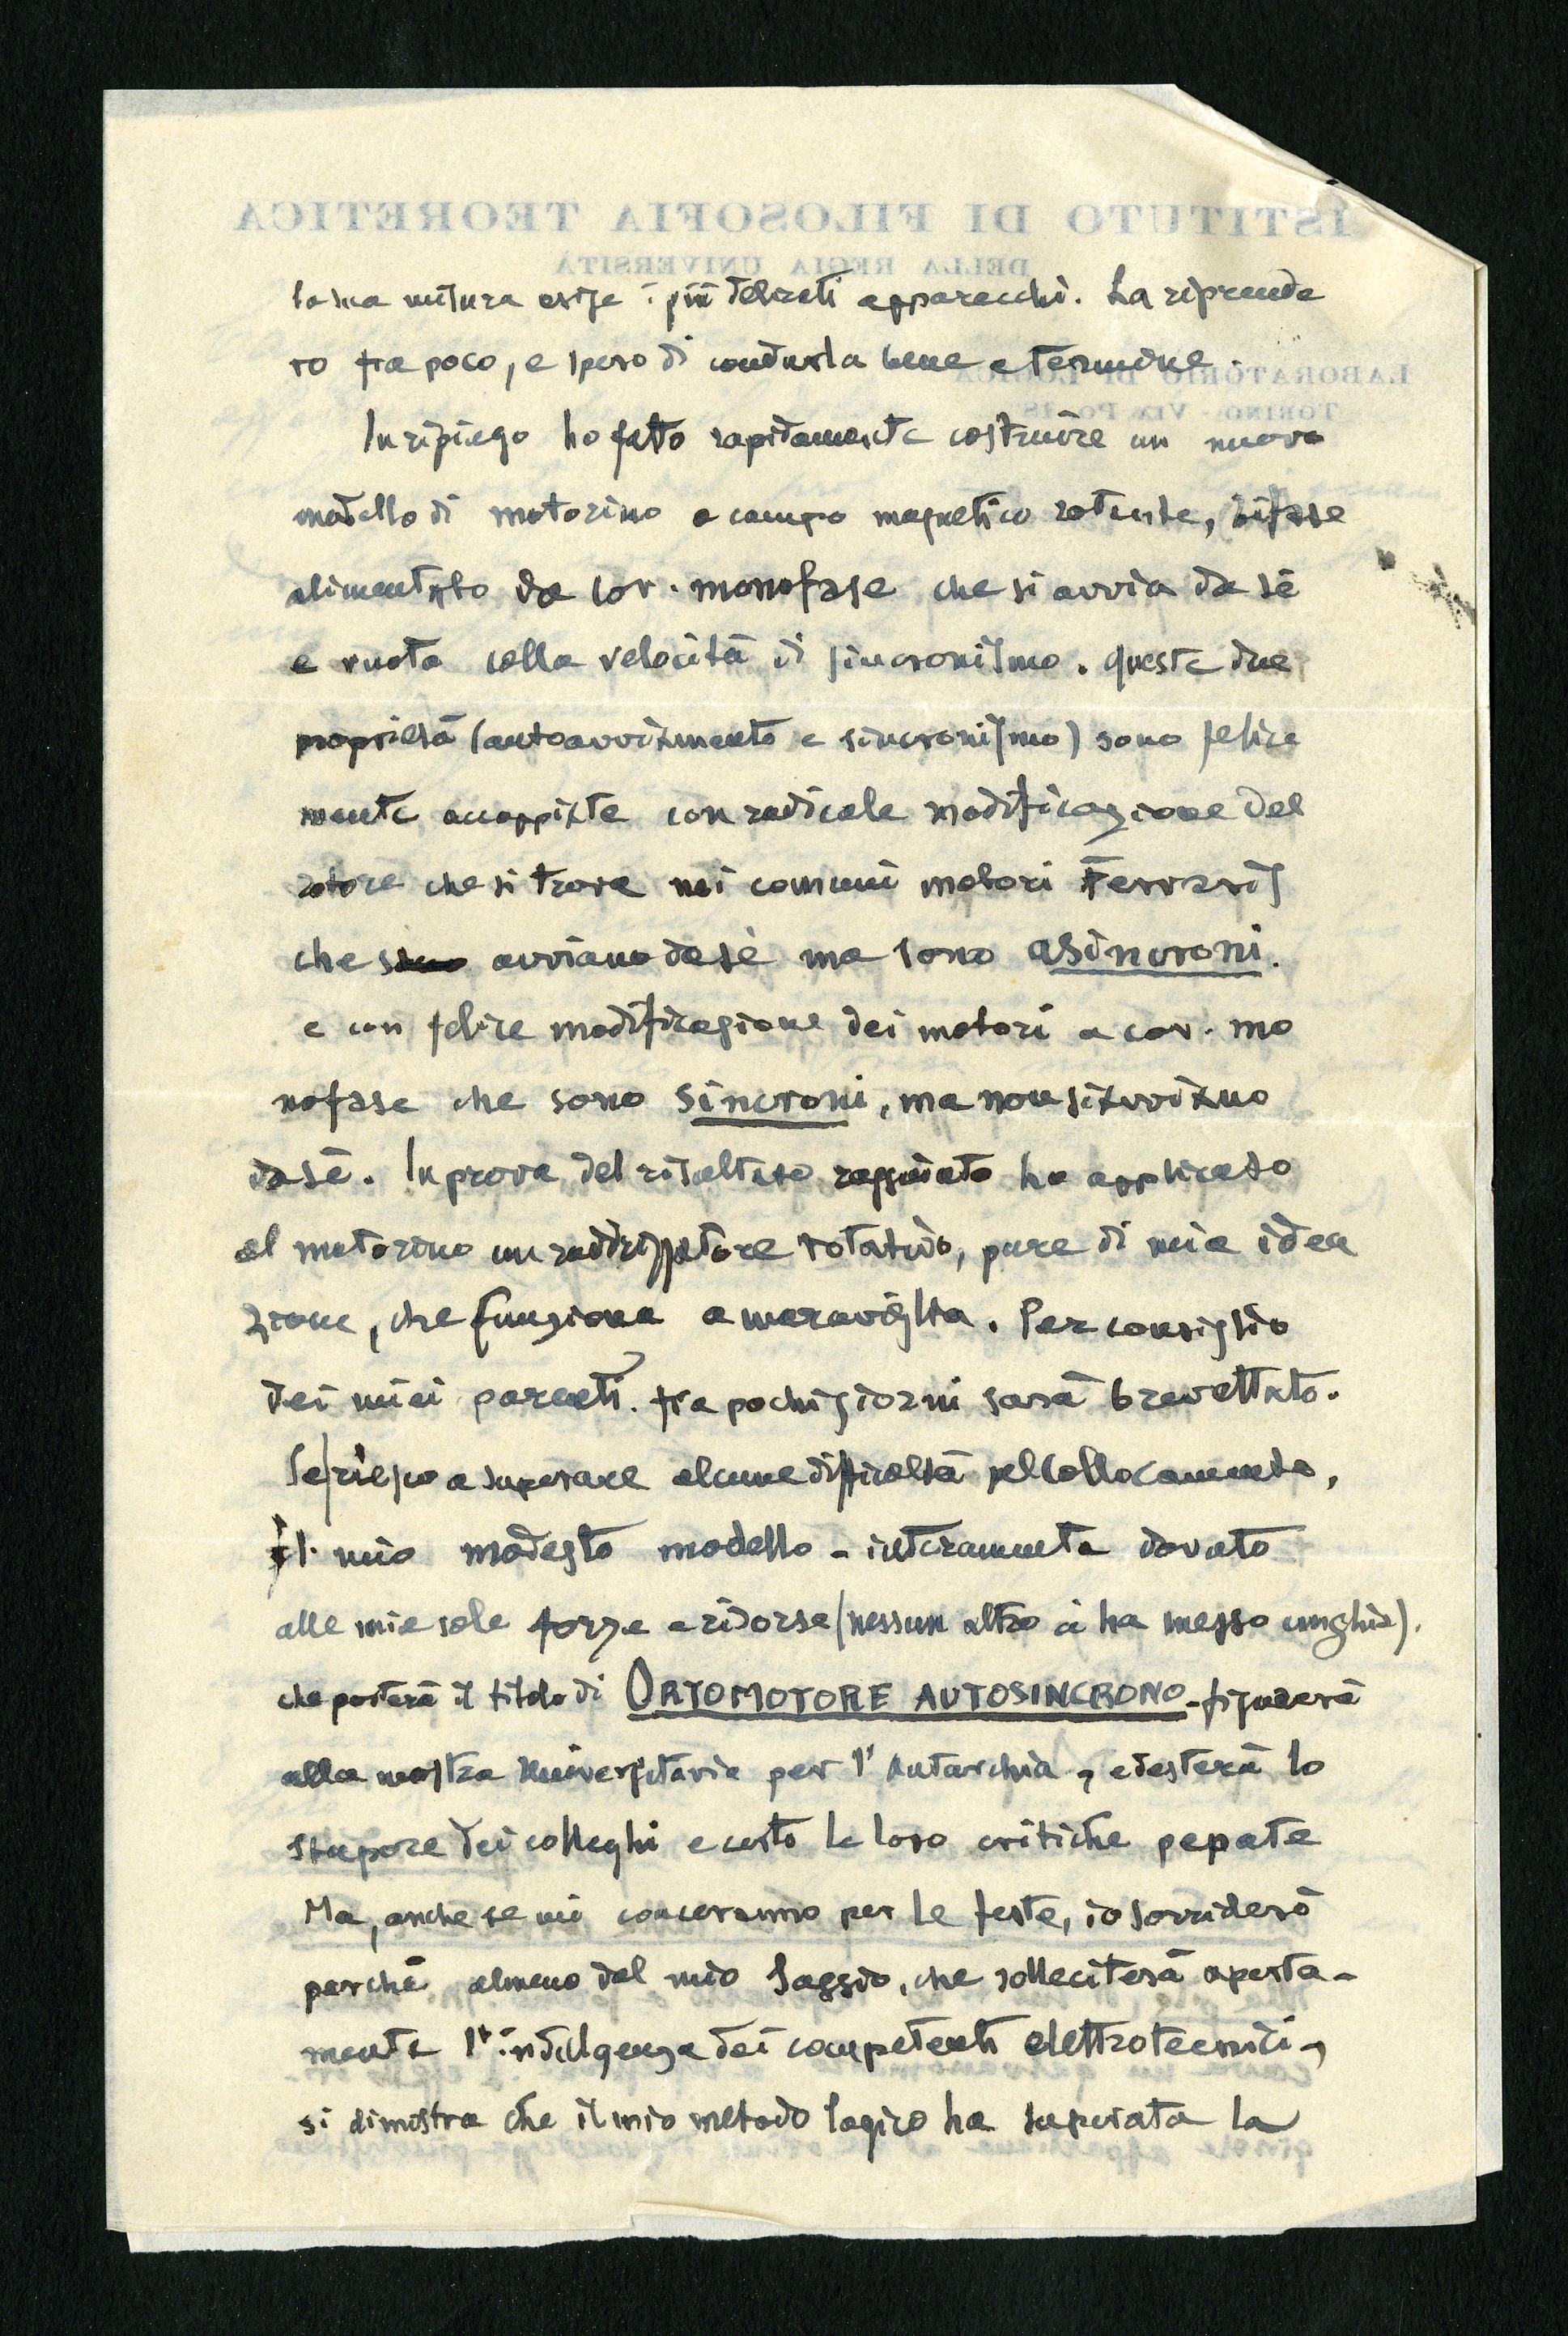 la sua misura esige i più delicati apparecchi. La riprende
rò fra poco, e spero di condurla bene a termine.
In ripiego ho fatto rapidamente costruire un nuovo
modello di motorino a campo magnetico rotante, bifase
alimentato da cor. monofase che si avvia da sé
e ruota colla velocità di sincronismo. Queste due
proprietà (autoavviamento e sincronismo) sono felice
mente accoppiate con radicale modificazione del
rotore che si trova nei comuni motori Ferraris
che s avviano da sè ma sono asincroni.
e con felice modificazione dei motori a cor. mo
nofase che sono sincroni, ma non si avviano
da sè. In prova del risultato raggiunto ho applicato
al motorino un raddrizzatore rotativo, pure di mia idea
zione, che funziona a meraviglia. Per consiglio
dei miei parenti. fra pochi giorni sarà brevettato.
Se riesco a superare alcune difficoltà pel collocamento,
il mio modesto modello - interamente dovuto
alle mie sole forze e risorse (nessun altro ci ha messo unghia).
che porterà il titolo di ORTOMOTORE AUTOSINCRONO - figurerà
alla mostra Universitaria per l'Autarchia, e desterà lo
stupore dei colleghi e certo le loro critiche pepate
Ma, anche se mi conceranno per le feste, io sorriderò
perchè almeno dal mio Saggio, che solleciterà aperta-
mente l'indulgenza dei competenti elettrotecnici,
si dimostra che il mio metodo logico ha superata la
ISTITUTO DI FILOSOFIA TEORETICA
DELLA REGIA UNIVERSITÀ
LABORATORIO DI LOGICA
TORINO - VIA PO, 18